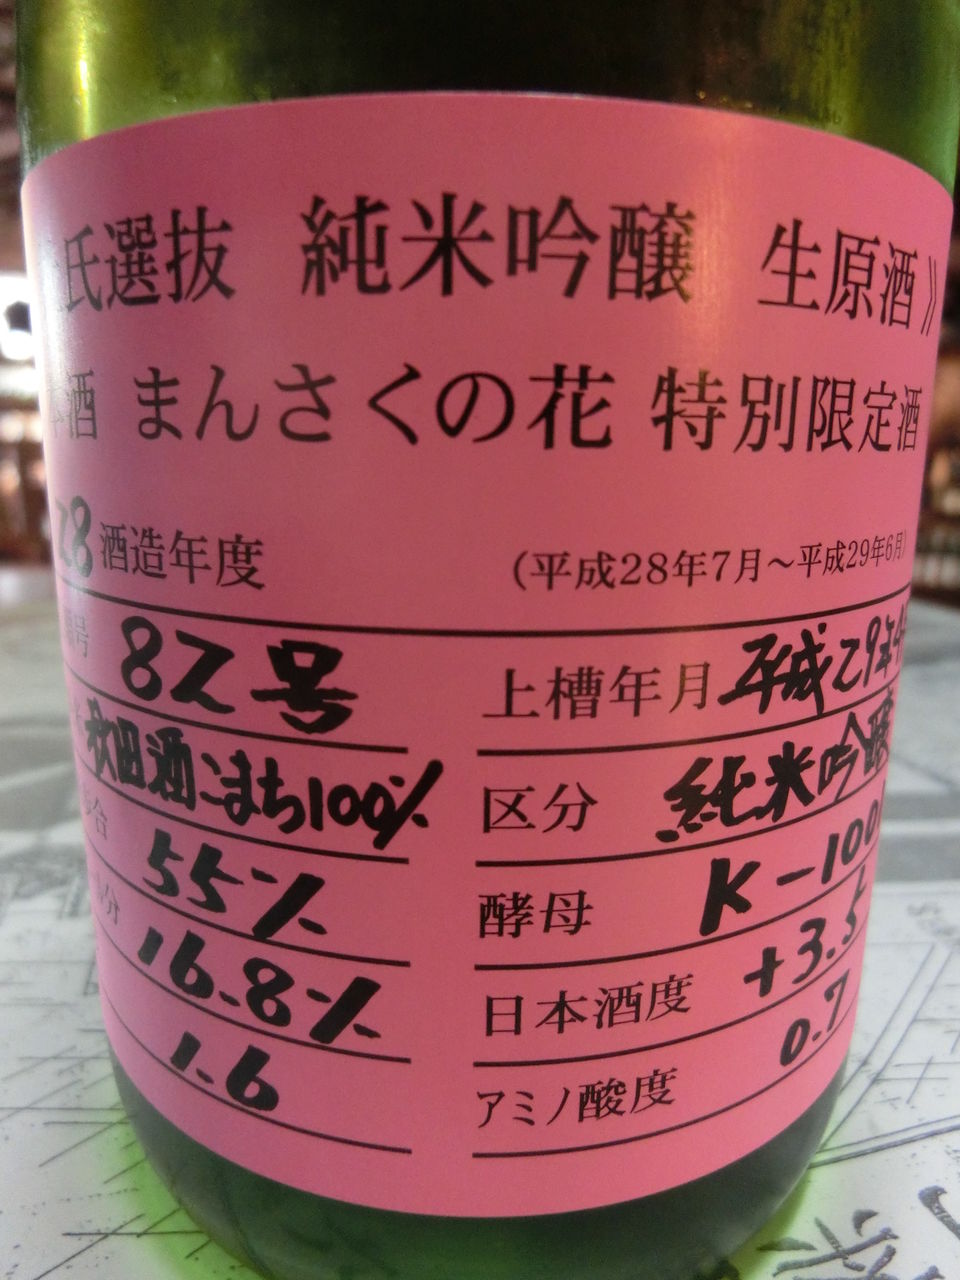 氏選抜 純米吟醸 生原酒》
酒 まんさくの花 特別限定酒
28酒造年度 (平成28年7月〜平成29年6月)
号 82号
上槽年月 平成29年4
秋田酒こまち100%
区分 純米吟醸
歩合 55%
酵母 K-100
分 16.8%
日本酒度 +3.5
1.6
アミノ酸度 0.7